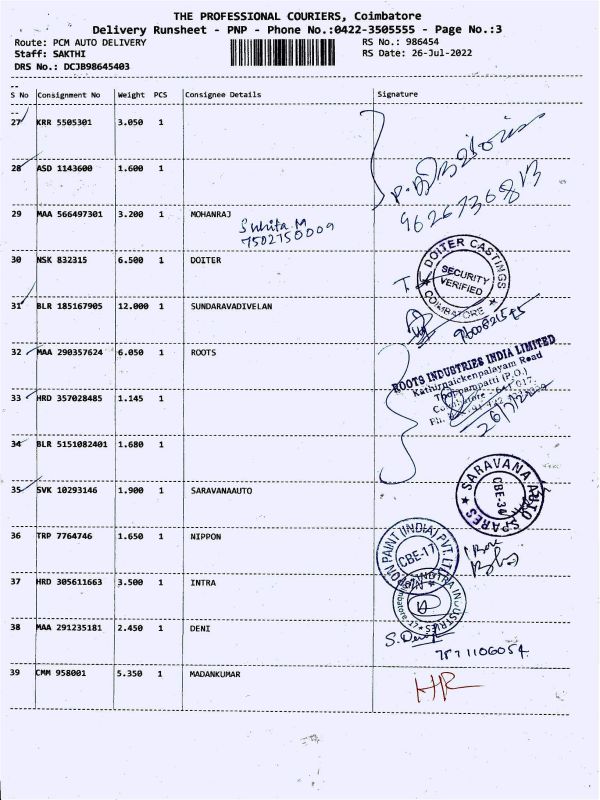 THE PROFESSIONAL COURIERS, Coimbatore
Delivery Runsheet - PNP - Phone No.:0422-3505555 - Page No.:3
Route: PCM AUTO DELIVERY RS No.: 986454
Staff: SAKTHI RS Date: 26-Jul-2022
DRS No.: DCJB98645403
S No Consignment No Weight PCS Consignee Details Signature
27 KRR 5505301 3.050 1
28 ASD 1143600 1.600 1
9626736813
29 MAA 566497301 3.200 1 MOHANRAJ
Sunita M
7502750009
30 NSK 832315 6.500 1 DOITER
DOITER CASTINGS
SECURITY
VERIFIED
COIMBATORE
31 BLR 185167905 12.000 1 SUNDARAVADIVELAN
32 MAA 290357624 6.050 1 ROOTS
ROOTS INDUSTRIES INDIA LIMITED
Kathirnaickenpalayam Road
Thoppampatti (P.O.)
33 HRD 357028485 1.145 1
26/7/2022
34 BLR 5151082401 1.680 1
35 SVK 10293146 1.900 1 SARAVANAAUTO
SARAVANA AUTO SPARES
CBE-34
36 TRP 7764746 1.650 1 NIPPON
NIPPON PAINT (INDIA) PVT. LTD.
CBE-17
37 HRD 305611663 3.500 1 INTRA
INTRA INDUSTRIES
38 MAA 291235181 2.450 1 DENI
7871106054
39 CMM 958001 5.350 1 MADANKUMAR
HR